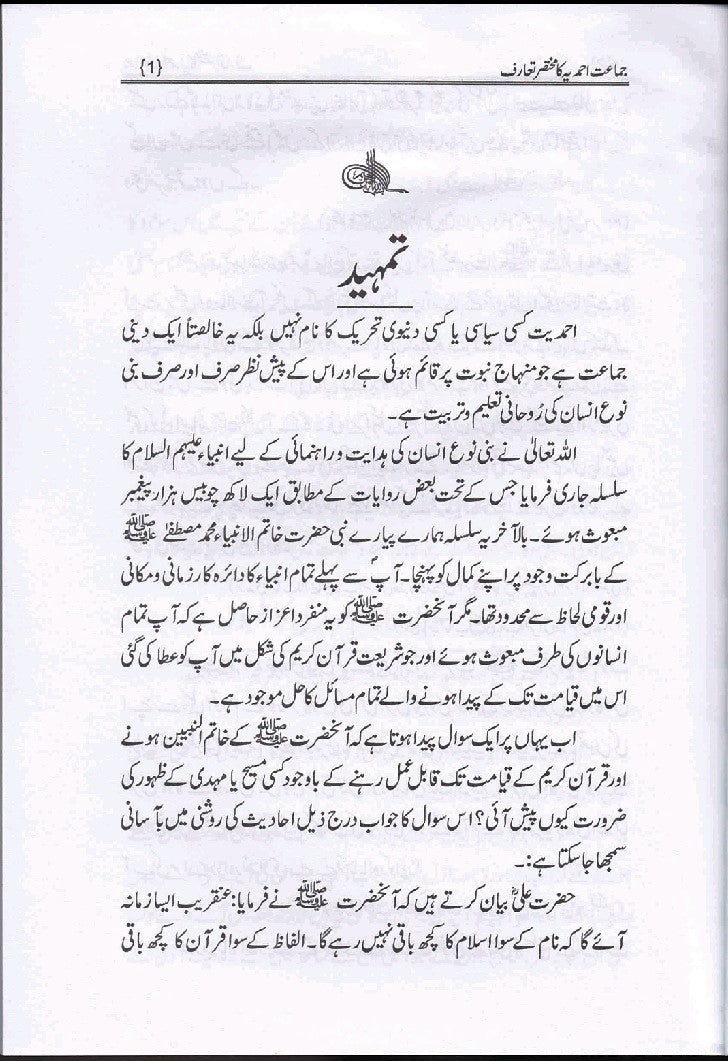 جماعت احمدیہ کا مختصر تعارف {1}
تمہید
احمدیت کسی سیاسی یا کسی دنیوی تحریک کا نام نہیں بلکہ یہ خالصتاً ایک دینی
جماعت ہے جو منہاج نبوت پر قائم ہوئی ہے اور اس کے پیش نظر صرف اور صرف بنی
نوع انسان کی رُوحانی تعلیم و تربیت ہے۔
اللہ تعالیٰ نے بنی نوع انسان کی ہدایت و راہنمائی کے لیے انبیاء علیہم السلام کا
سلسلہ جاری فرمایا جس کے تحت بعض روایات کے مطابق ایک لاکھ چوبیس ہزار پیغمبر
مبعوث ہوئے۔ بالآخر یہ سلسلہ ہمارے پیارے نبی حضرت خاتم الانبیاء محمد مصطفےٰ ﷺ
کے بابرکت وجود پر اپنے کمال کو پہنچا۔ آپؐ سے پہلے تمام انبیاء کا دائرہ کار زمانی و مکانی
اور قومی لحاظ سے محدود تھا۔ مگر آنحضرت ﷺ کو یہ منفرد اعزاز حاصل ہے کہ آپ تمام
انسانوں کی طرف مبعوث ہوئے اور جو شریعت قرآن کریم کی شکل میں آپ کو عطا کی گئی
اس میں قیامت تک کے پیدا ہونے والے تمام مسائل کا حل موجود ہے۔
اب یہاں پر ایک سوال پیدا ہوتا ہے کہ آنحضرت ﷺ کے خاتم النبیین ہونے
اور قرآن کریم کے قیامت تک قابل عمل رہنے کے باوجود کسی مسیح یا مہدی کے ظہور کی
ضرورت کیوں پیش آئی؟ اس سوال کا جواب درج ذیل احادیث کی روشنی میں بآسانی
سمجھا جا سکتا ہے:۔
حضرت علیؓ بیان کرتے ہیں کہ آنحضرت ﷺ نے فرمایا: عنقریب ایسا زمانہ
آئے گا کہ نام کے سوا اسلام کا کچھ باقی نہیں رہے گا۔ الفاظ کے سوا قرآن کا کچھ باقی